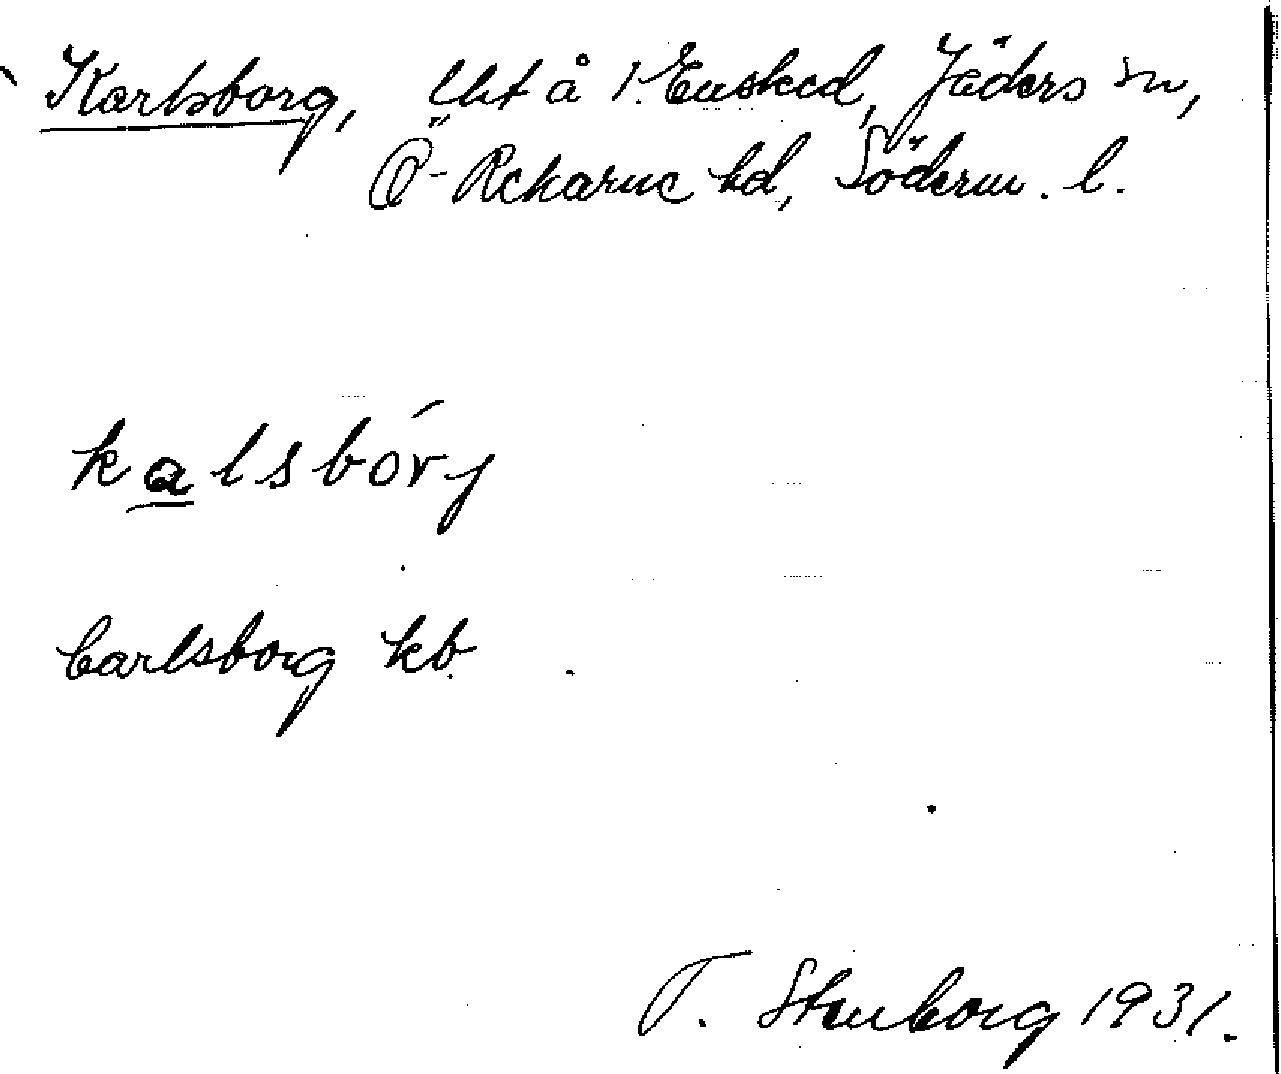 Karlsborg, lht å 1. Ensked, Jäders sn,
Ö-Rekarne hd, Söderm. l.
kalsbórj
Carlsborg kb.
T. Stenborg 1931.